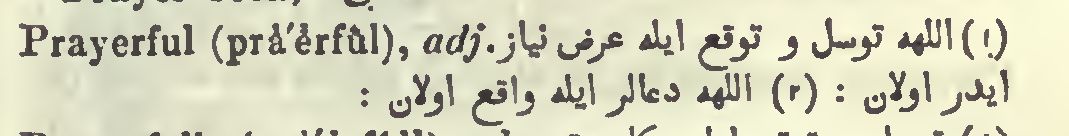 Prayerful (prả′ẻrfûl), adj. (١) اللهه توسل و توقع ايله عرض نياز
ايدر اولان : (٢) اللهه دعالر ايله واقع اولان :